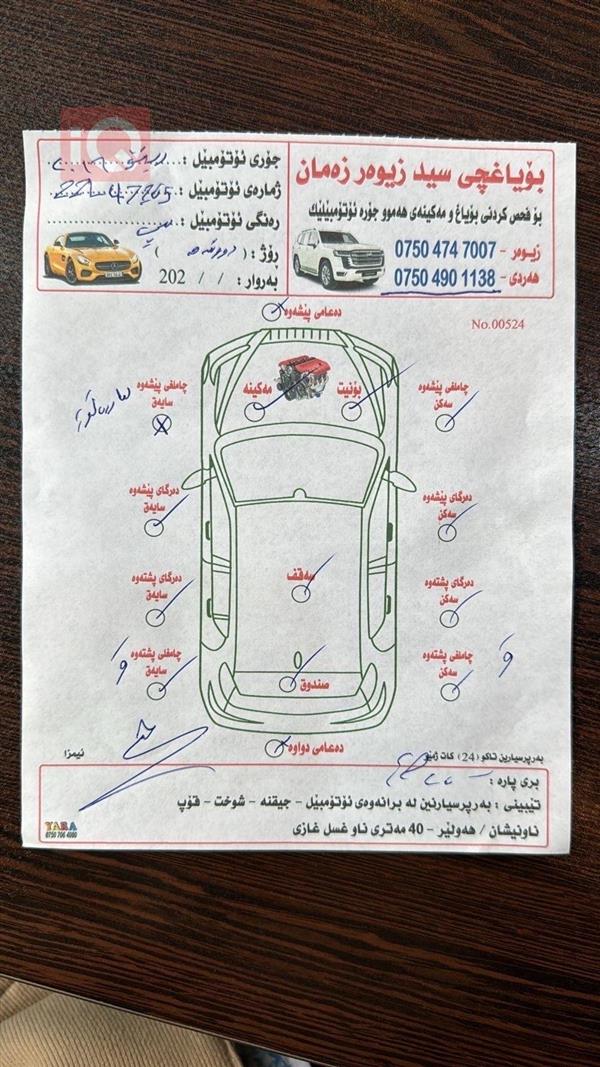 iQ
بۆیاغچی سید زیوەر زەمان
بۆ فحص کردنی بۆیاغ و مەکینەی هەموو جۆرە ئۆتۆمبێلێک
زیوەر - 0750 474 7007
هەردی - 0750 490 1138
جۆری ئۆتۆمبێل :
ژمارەی ئۆتۆمبێل :
رەنگی ئۆتۆمبێل :
رۆژ : ( )
بەروار : / / 202
No.00524
دەعامی پێشەوە
مەکینە
بۆنێت
چاملغی پێشەوە سایەق
چاملغی پێشەوە سەکن
دەرگای پێشەوە سایەق
دەرگای پێشەوە سەکن
سەقف
دەرگای پشتەوە سایەق
دەرگای پشتەوە سەکن
چاملغی پشتەوە سایەق
چاملغی پشتەوە سەکن
صندوق
دەعامی دواوە
بەرپرسیارین تاکو (24) کات ژمێر
ئیمزا
بری پارە :
تێبینی : بەرپرسیارنین لە برانەوەی ئۆتۆمبێل - جیقنە - شوخت - قۆپ
ناونیشان / هەولێر - 40 مەتری ناو غسل غازی
TARA
0750 706 4080